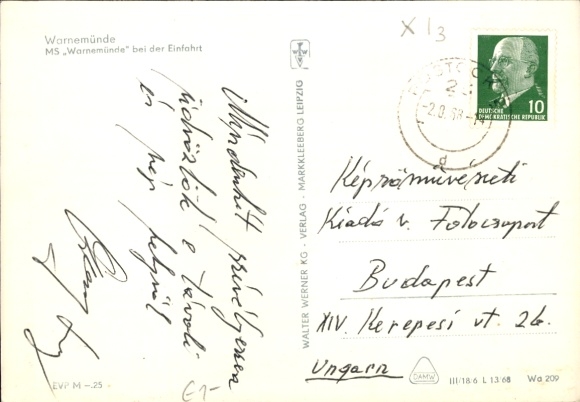 Warnemünde
MS „Warnemünde" bei der Einfahrt
Mindenkit szívélyesen
üdvözlök e távoli
és szép helyről
EVP M –.25
E1-
WALTER WERNER KG · VERLAG · MARKKLEEBERG LEIPZIG
X I3
ROSTOCK
DEUTSCHE
DEMOKRATISCHE REPUBLIK
10
Képzőművészeti
Kiadó v. Fotocsoport
Budapest
XIV. Kerepesi út. 26.
Ungarn
DAMW
III/18/6 L 13/68 Wa 209